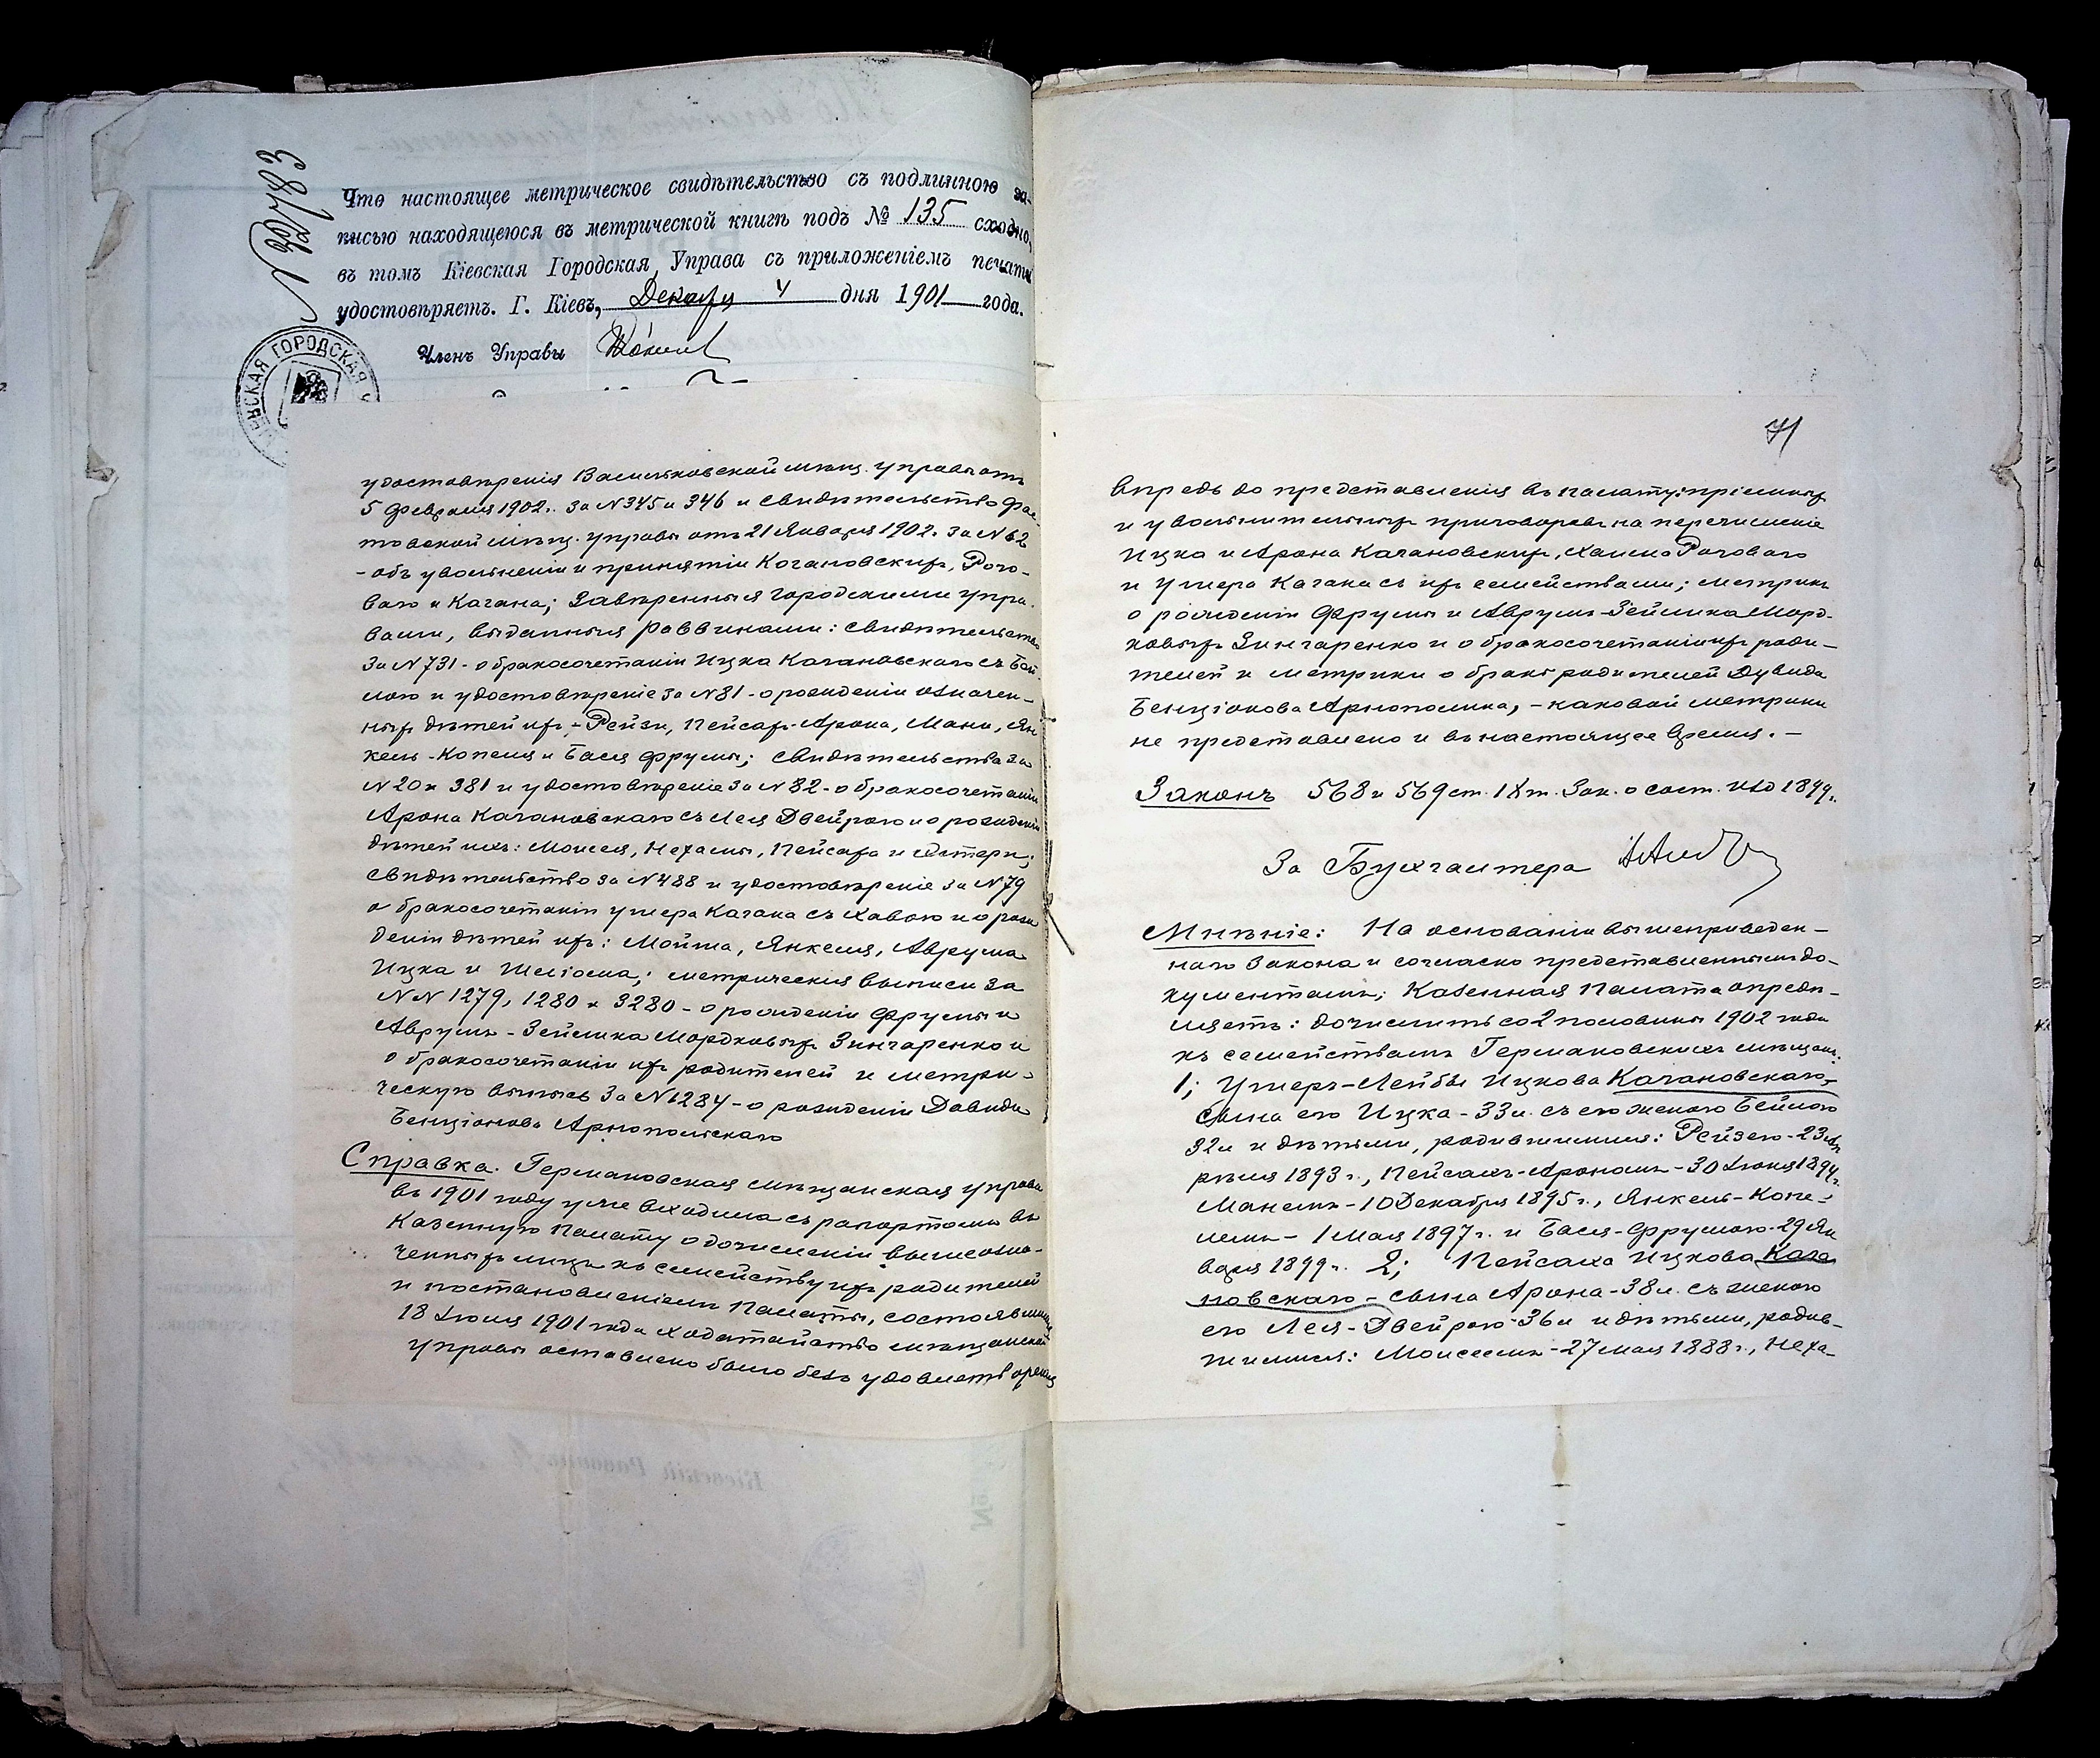 № 32783
Что настоящее метрическое свидѣтельство съ подлинною за-
писью находящеюся въ метрической книгѣ подъ № 135 сходно,
въ томъ Кіевская Городская Управа съ приложеніемъ печати
удостовѣряетъ. Г. Кіевъ, Декабря 4 дня 1901 года.
Членъ Управы
ГОРОДСКАЯ
удостовѣренія Васильковской мѣщ. управы отъ
5 Февраля 1902 г. за N 345 и 346 и свидѣтельство Фас-
товской мѣщ. управы отъ 21 Января 1902 г. за N 62
- объ увольненіи и принятіи Кагановскихъ, Рого-
ваго и Кагана; Завѣренныя городскими упра-
вами, выданныя раввинами: свидѣтельство
за N 731 - о бракосочетаніи Ицка Кагановскаго съ Бей-
лою и удостовѣреніе за N 81 - о рожденіи означен-
ныхъ дѣтей ихъ - Рейзи, Пейсахъ-Арона, Мани, Ян-
кель-Копеля и Бася Фрумы; свидѣтельства за
N 20 и 381 и удостовѣреніе за N 82 - о бракосочетаніи
Арона Кагановскаго съ Лея Двейрою и о рожденіи
дѣтей ихъ: Моисея, Нехамы, Пейсаха и Эстери;
свидѣтельство за N 488 и удостовѣреніе за N 79
о бракосочетаніи Умера Кагана съ Хавою и о рож-
деніи дѣтей ихъ: Мойша, Янкеля, Аврума
Ицка и Шліома; метрическія выписи за
NN 1279, 1280 и 3280 - о рожденіи Фрумы и
Аврумъ-Зейлика Мордковыхъ Зингаренко и
о бракосочетаніи ихъ родителей и метри-
ческую выпись за N 1284 - о рожденіи Давида
Бенціонова Арнопольскаго
Справка. Германовская мѣщанская управа
въ 1901 году уже входила съ рапортомъ въ
Казенную Палату о дочисленіи вышеозна-
ченныхъ лицъ къ семейству ихъ родителей
и постановленіемъ Палаты, состоявшимся
18 Іюля 1901 года ходатайство мѣщанской
управы оставлено было безъ удовлетворенія
71
впредь до представленія въ палату: пріемныхъ
и увольнительныхъ приговоровъ на перечисленіе
Ицка и Арона Кагановскихъ, Хаима Рогового
и Умера Кагана съ ихъ семействами; метрикъ
о рожденіи Фрумы и Аврумъ-Зейлика Морд-
ковыхъ Зингаренко и о бракосочетаніи ихъ роди-
телей и метрики о бракѣ родителей Дувида
Бенціонова Арнополика, - каковой метрики
не представлено и въ настоящее время. -
Законъ 568 и 569 ст. IX т. Зак. о сост. изд 1899 г.
За Бухгалтера
Мнѣніе: На основаніи вышеприведен-
наго Закона и согласно представленнымъ до-
кументамъ, Казенная Палата опредѣ-
ляетъ: дочислить со 2 половины 1902 года
къ семействамъ Германовскихъ мѣщанъ:
1; Умеръ-Лейбы Ицкова Кагановскаго,-
сына его Ицка - 33 л. съ его женою Бейлою
32 л и дѣтьми, родившимися: Рейзею - 23 Ав-
реля 1893 г., Пейсахъ-Арономъ - 30 Іюня 1894 г.
Манемъ - 10 Декабря 1895 г., Янкель-Копе-
лемъ - 1 Мая 1897 г. и Бася-Фрумою - 29 Ян
варя 1899 г. 2; Пейсаха Ицкова Кага
новскаго - сына Арона - 38 л. съ женою
его Лея-Двейрою - 36 л и дѣтьми, родив-
шимися: Моисеемъ - 27 мая 1888 г., Неха-